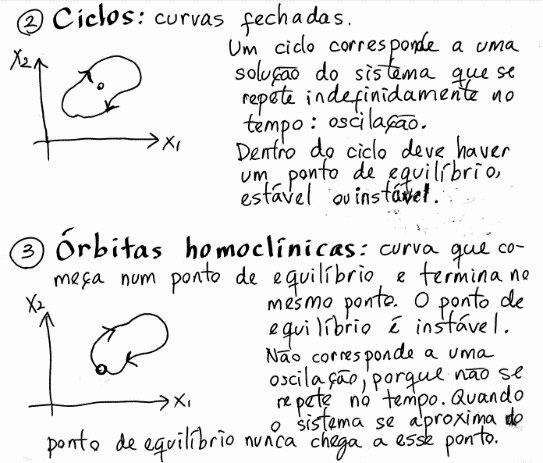 ② Ciclos: curvas fechadas.
Um ciclo corresponde a uma
x₂
solução do sistema que se
repete indefinidamente no
tempo: oscilação.
x₁
Dentro do ciclo deve haver
um ponto de equilíbrio,
estável ou instável.
③ Órbitas homoclínicas: curva que co-
meça num ponto de equilíbrio e termina no
x₂
mesmo ponto. O ponto de
equilíbrio é instável.
Não corresponde a uma
oscilação, porque não se
x₁
repete no tempo. Quando
o sistema se aproxima do
ponto de equilíbrio nunca chega a esse ponto.